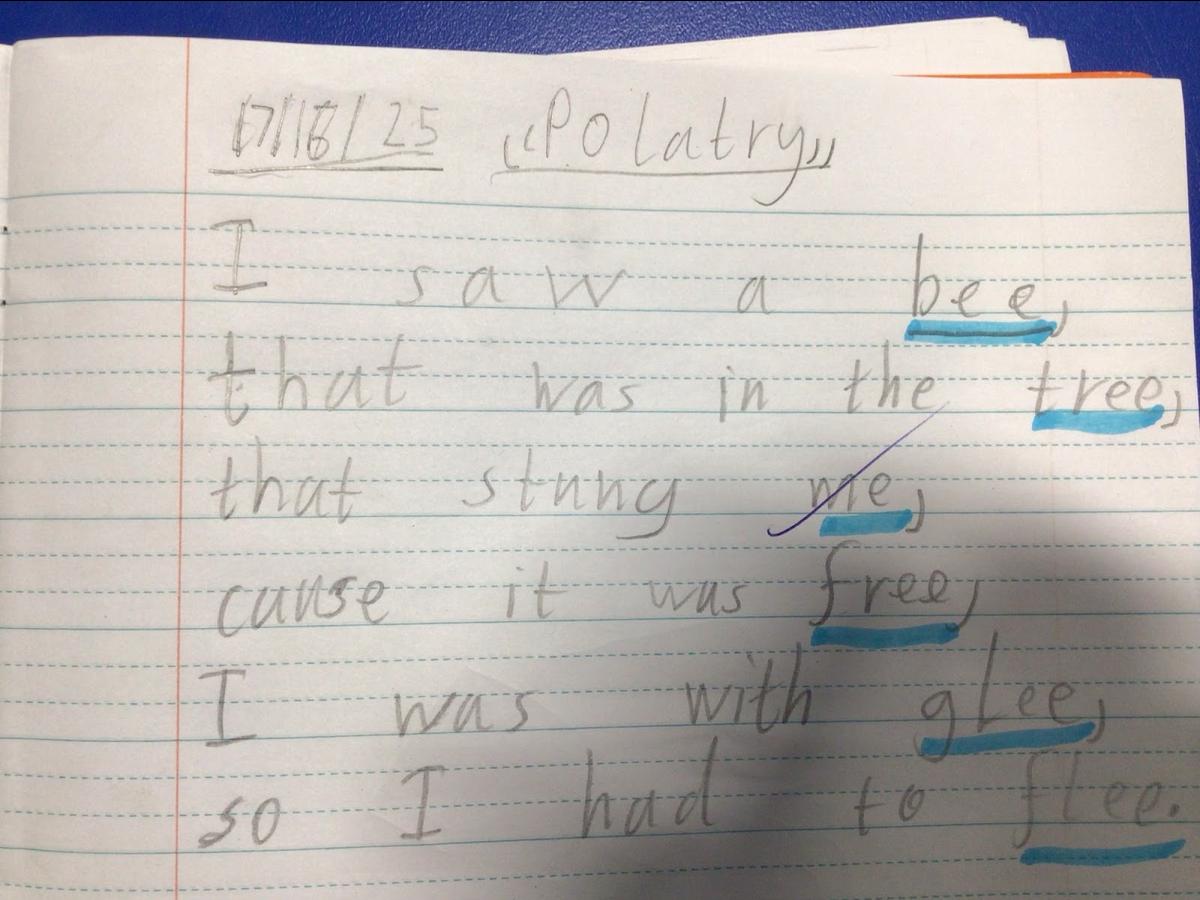 „“Polatry”
I saw a bee,
that was in the tree,
that stung me,
cause it was free,
I was with glee,
so I had to flee.